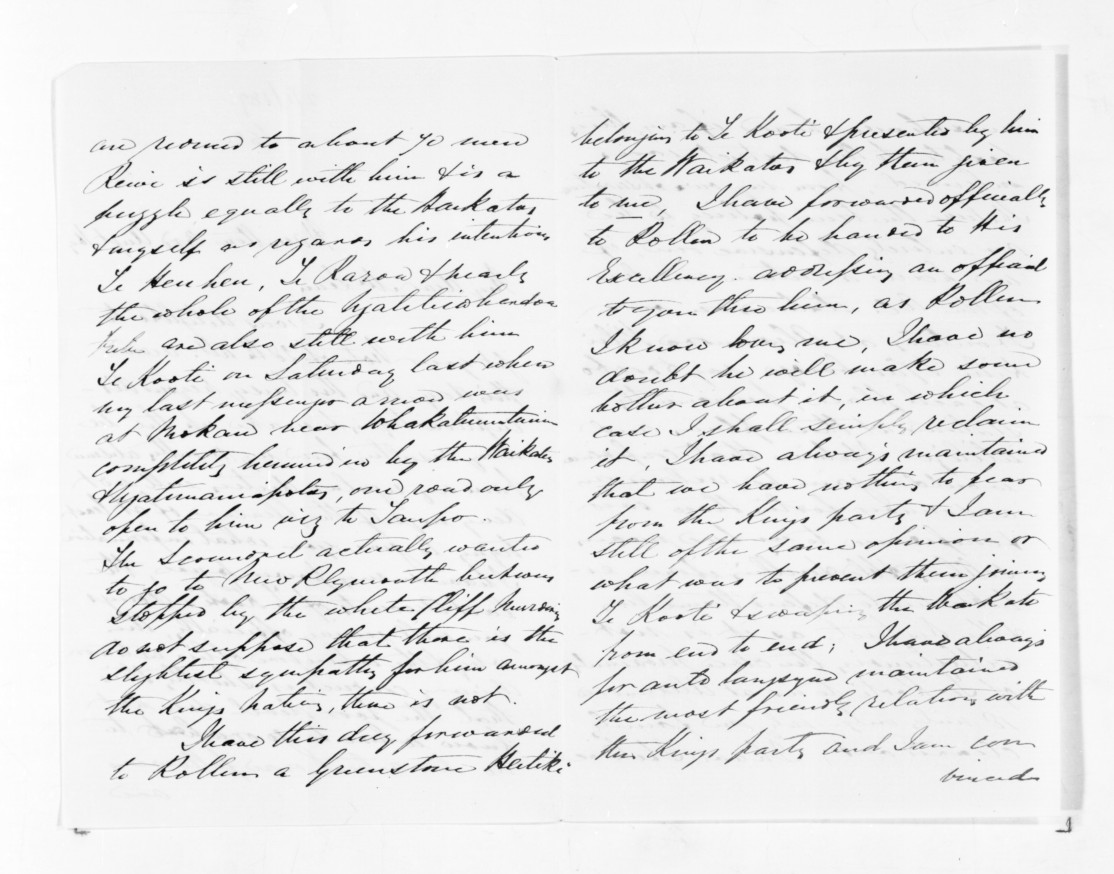 are reduced to about 70 men
Rewi is still with him & is a
puzzle equally to the Waikatos
& myself as regards his intentions
Te Heuheu, Te Raroa & nearly
the whole of the Ngatitiwhendoa
tribe are also still with him
Te Kooti on Saturday last when
my last messenger arrived was
at Mokau near Whakatumutumu
completely hemmed in by the Waikatos
& Ngatimaniapotos, one road only
open to him viz to Taupo.
The Scoundrel actually wanted
to go to New Plymouth but was
stopped by the White Cliff Murdering
do not suppose that there is the
slightest sympathy for him amongst
the Kings natives, there is not.
I have this day forwarded
to Rollen a Greenstone Heitiki
belonging to Te Kooti & presented by him
to the Waikatos & by them given
to me, I have forwarded officially
to Rollen to be handed to His
Excellency. addressing an official
to you thro him, as Rollen
I know loves me, I have no
doubt he will make some
bother about it, in which
case I shall simply reclaim
it, I have always maintained
that we have nothing to fear
from the Kings party & I am
still of the same opinion or
what was to prevent them joining
Te Kooti & sweeping the Waikato
from end to end; I have always
for auld langsyne maintained
the most friendly relations with
the Kings party and I am con
vinced